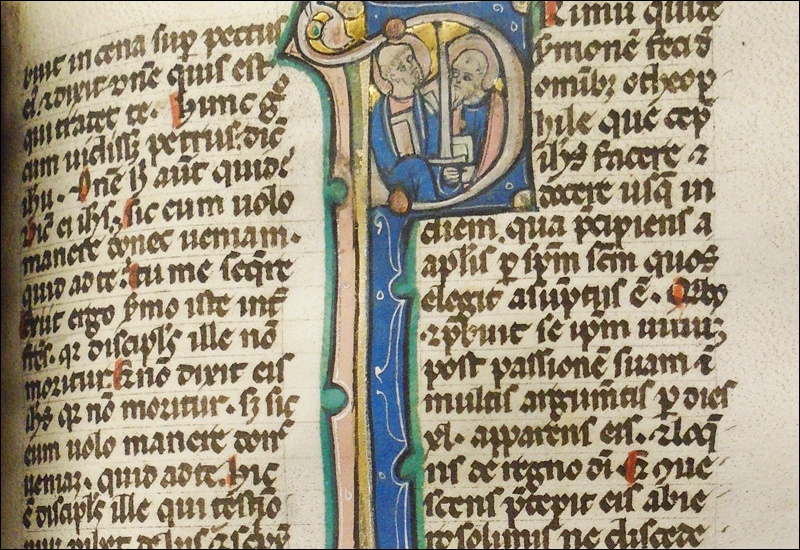 buit in cena sup̄ pectus
ei᷒ ⁊ dixit dn̄e quis est
qui tradet te. hunc g̊
cum uidiss; petrus: dic̄
ihu. Dn̄e h̄ aut̄ quid?
Dic̄ ei ihs. sic eum uolo
manere donec ueniam.
quid ad te. tu me seq̄re
Exiit ergo s̄mo iste int̄
fr̄es. qr discipls̄ ille nō
moritur. Et nō dixit eis
ihs qr nō moritur. s; sic
eum uolo manere don̄
ueniā. quid ad te. hic
ē discipls̄ ille qui testiō
Primū quidē
s̄monē feci d̄
omnib; o theop̄
hile que cep̄
ihs facere ⁊
docere usq̄ in
diem. qua p̄cipiens a
apl̄is p̄ sp̄m sc̄m quos
elegit asūptus ē.
⁊ p̄buit se ip̄m uiuū
post passionē suam ī
multis argum̄tis p̄ dies
xl. apparens eis. ⁊ loq̄
ns de regno dī. Et que
scens p̄cepit eis ab ie
rosolimis ne discede